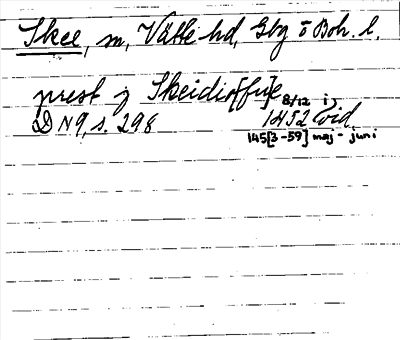 Skee, sn, Vätte hd, Gbg o Boh. l.
prest j Skeidis[ffu]e
8/12 i
DN 9, s. 298 1452 vid.
145[3-59] maj - juni